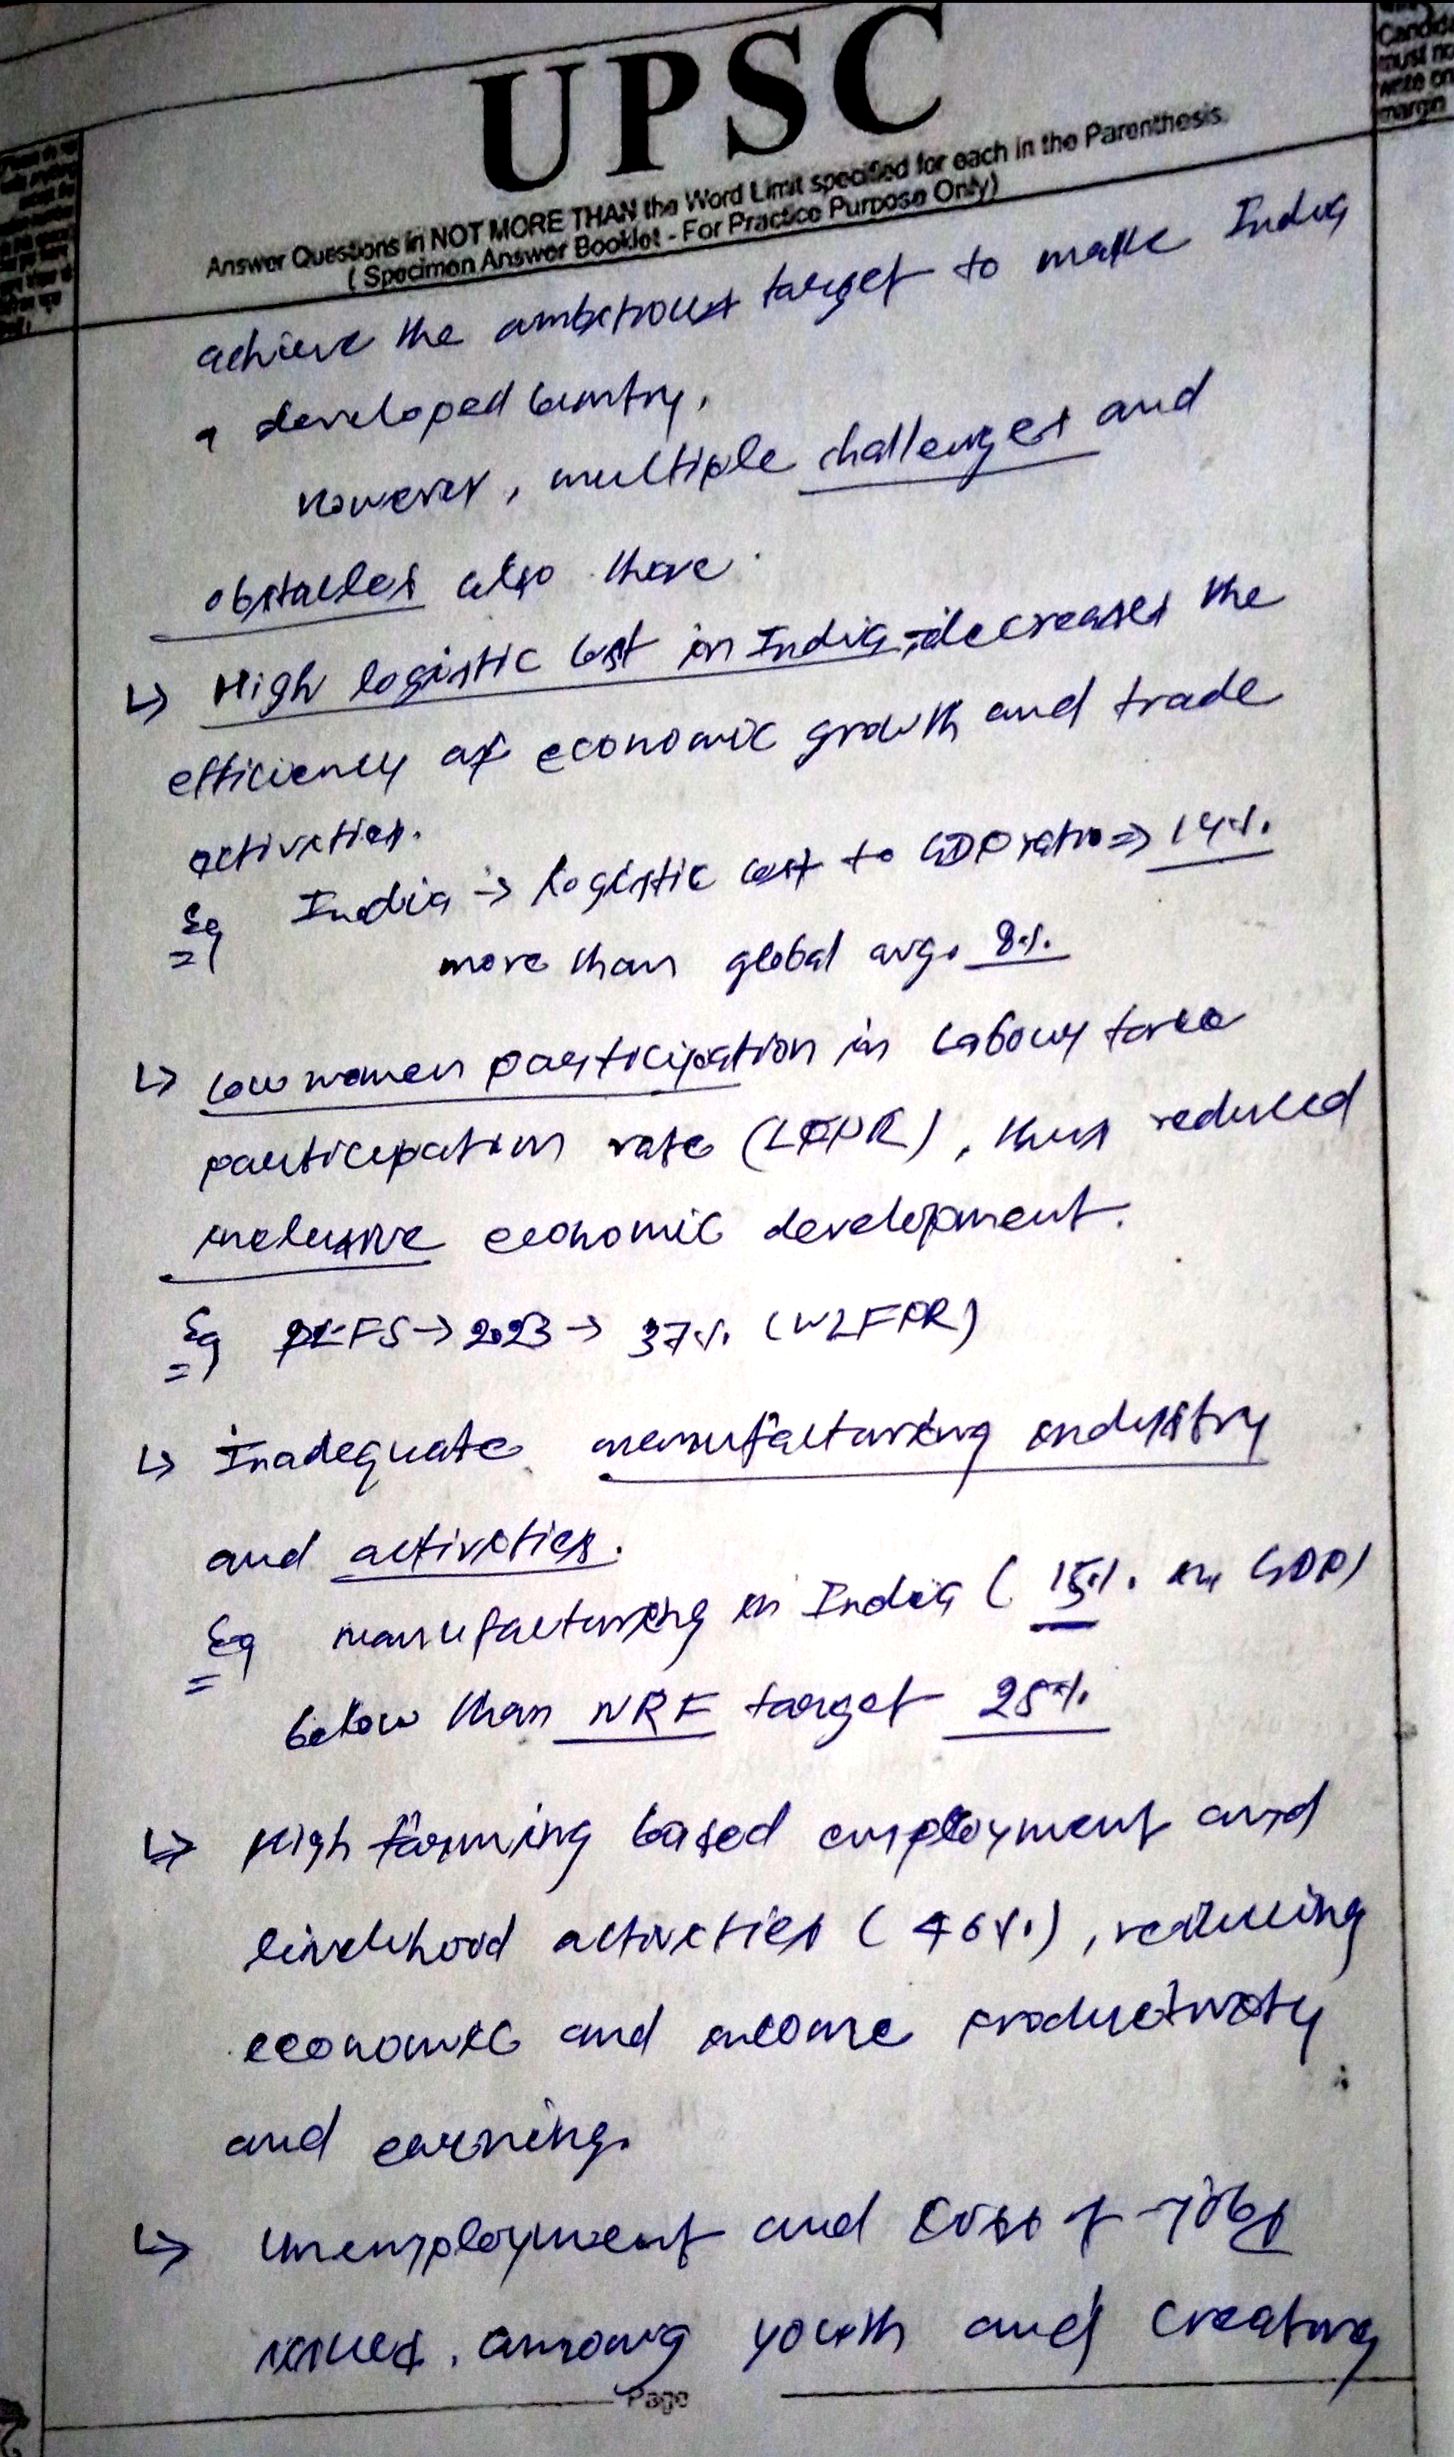 UPSC
Answer Questions in NOT MORE THAN the Word Limit specified for each in the Parenthesis.
( Specimen Answer Booklet - For Practice Purpose Only)
Candid
must no
write on
margin
achieve the ambitious target to make India
a developed country.
However, multiple challenges and
obstacles also there.
↳ High logistic cost in India, decreases the
efficiency of economic growth and trade
activities.
Eg India → logistic cost to GDP ratio ⇒ 14%.
more than global avg. 8%.
↳ Low women participation in Labour force
participation rate (LFPR), thus reduced
inclusive economic development.
Eg PLFS → 2023 → 37%. (WLFPR)
↳ Inadequate manufacturing industry
and activities.
Eg manufacturing in India ( 15%. in GDP)
below than target 25%.
↳ High farming based employment and
livelihood activities ( 46%.), reducing
economic and income productivity
and earning.
↳ Unemployment and loss of jobs
issues. among youth and creating
Page